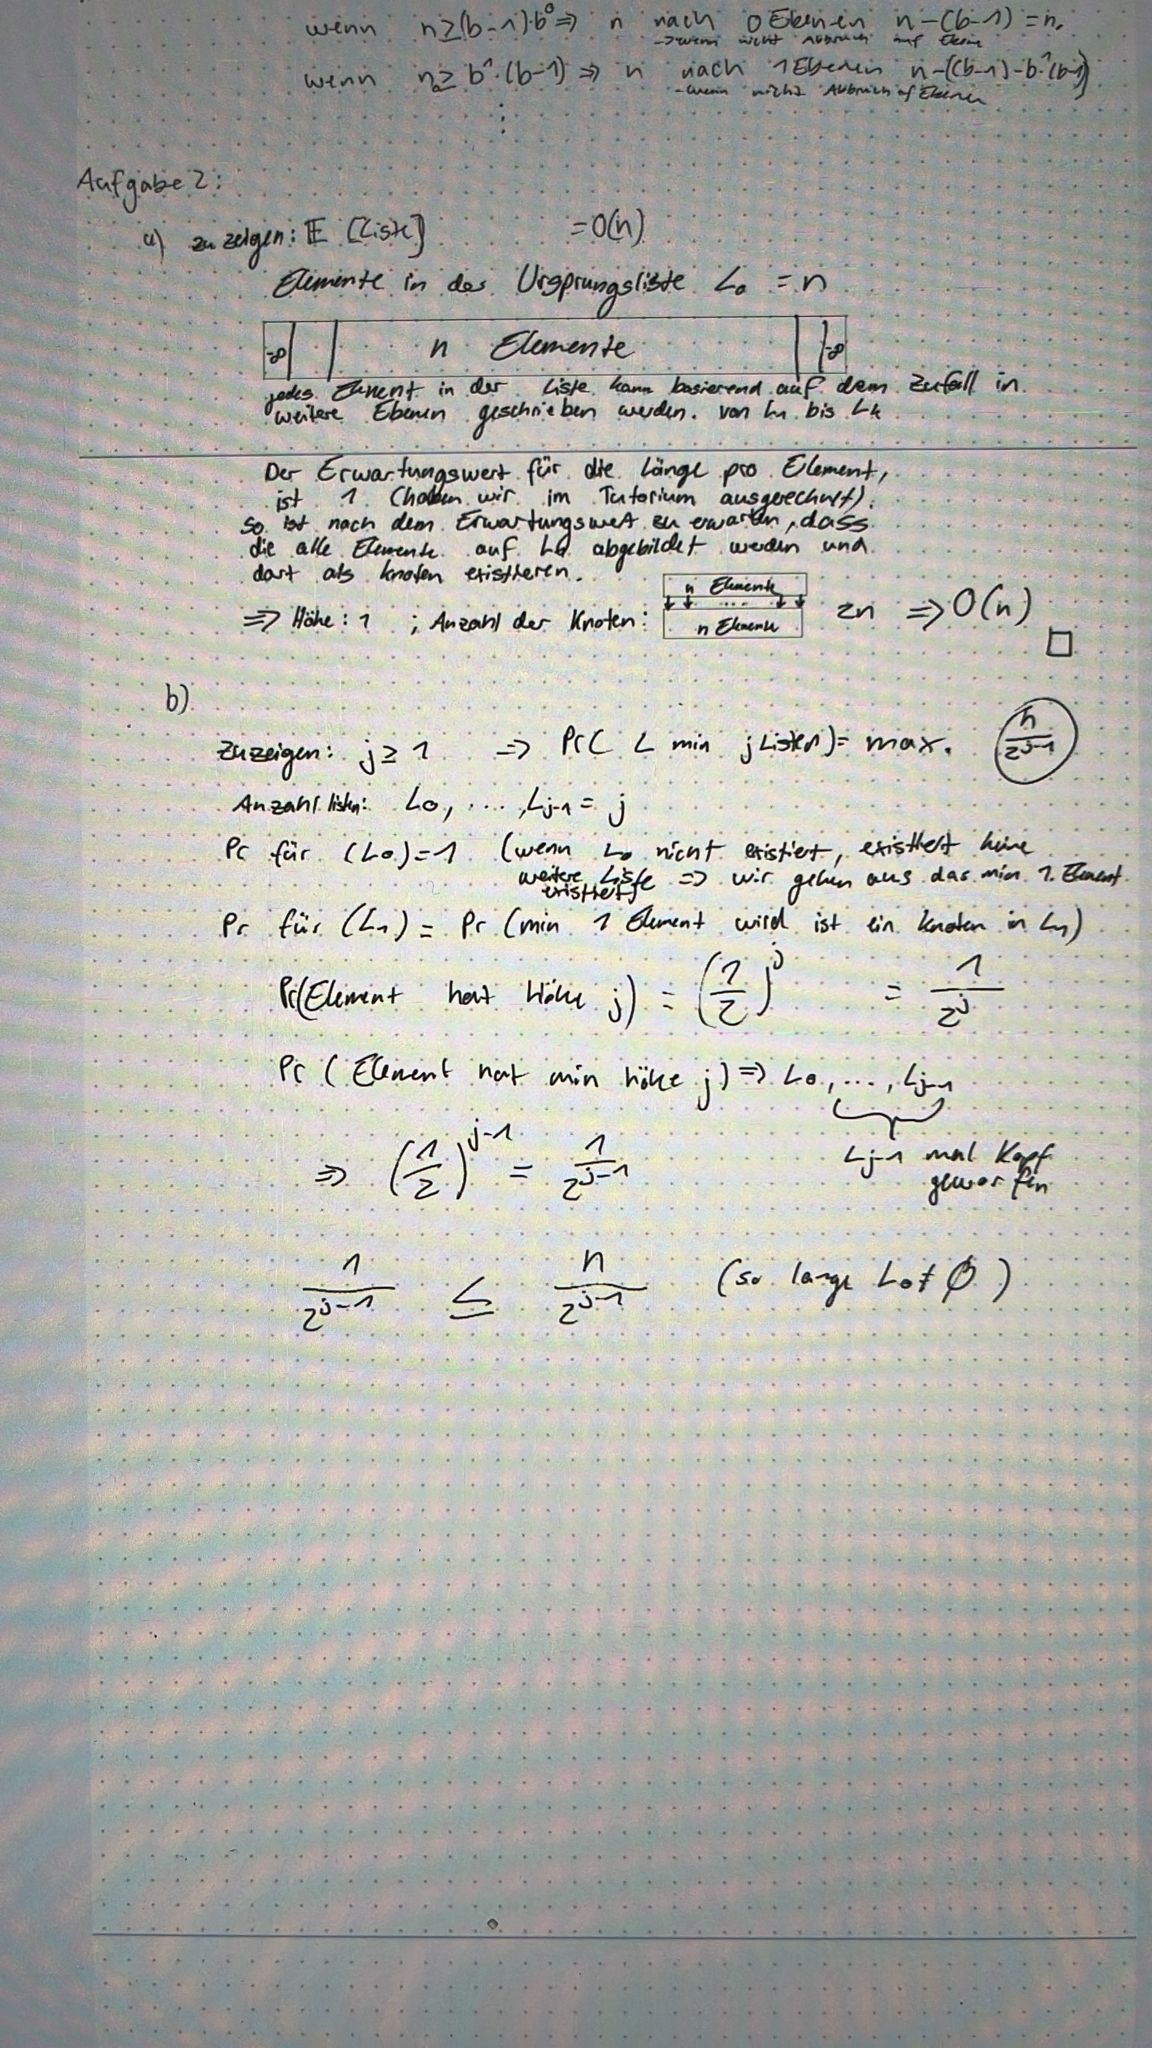 wenn n ≥ (b-1)·b⁰ ⇒ n nach 0 Ebenen n-(b-1) = n.
→ wenn nicht Abbruch auf Ebene
wenn n ≥ b¹·(b-1) ⇒ n nach 1 Ebenen n-((b-1)-b¹(b-1))
-wenn nicht Abbruch auf Ebenen
⋮
Aufgabe 2:
a) zu zeigen: 𝔼 [Liste] = O(n)
Elemente in der Ursprungsliste L₀ = n
-∞ n Elemente -∞
jedes Element in der Liste kann basierend auf dem Zufall in
weitere Ebenen geschrieben werden. von L₁ bis Lₖ
Der Erwartungswert für die Länge pro Element,
ist 1 (haben wir im Tutorium ausgerechnet).
So ist nach dem Erwartungswert zu erwarten, dass
die alle Elemente auf L₀ abgebildet werden und
dort als knoten existieren.
⇒ Höhe: 1 ; Anzahl der Knoten: n Elemente ↓ ↓ ... ↓ ↓ n Elemente 2n ⇒ O(n)
□
b)
zu zeigen: j ≥ 1 ⇒ Pr( L min j Listen) = max. n/2^(j-1)
Anzahl listen: L₀, ...., L_(j-1) = j
Pr für (L₀) = 1 (wenn L₀ nicht existiert, existiert keine
weitere Liste ⇒ wir gehen aus das min 1. Element
existiert)
Pr für (L₁) = Pr (min 1 Element wird ist ein knoten in L₁)
Pr(Element hat Höhe j) = (1/2)^j = 1/2^j
Pr ( Element hat min höhe j) ⇒ L₀, ..., L_(j-1)
⇒ (1/2)^(j-1) = 1/2^(j-1)
L_(j-1) mal Kopf
geworfen
1/2^(j-1) ≤ n/2^(j-1) (so lange L₀ ≠ ∅)